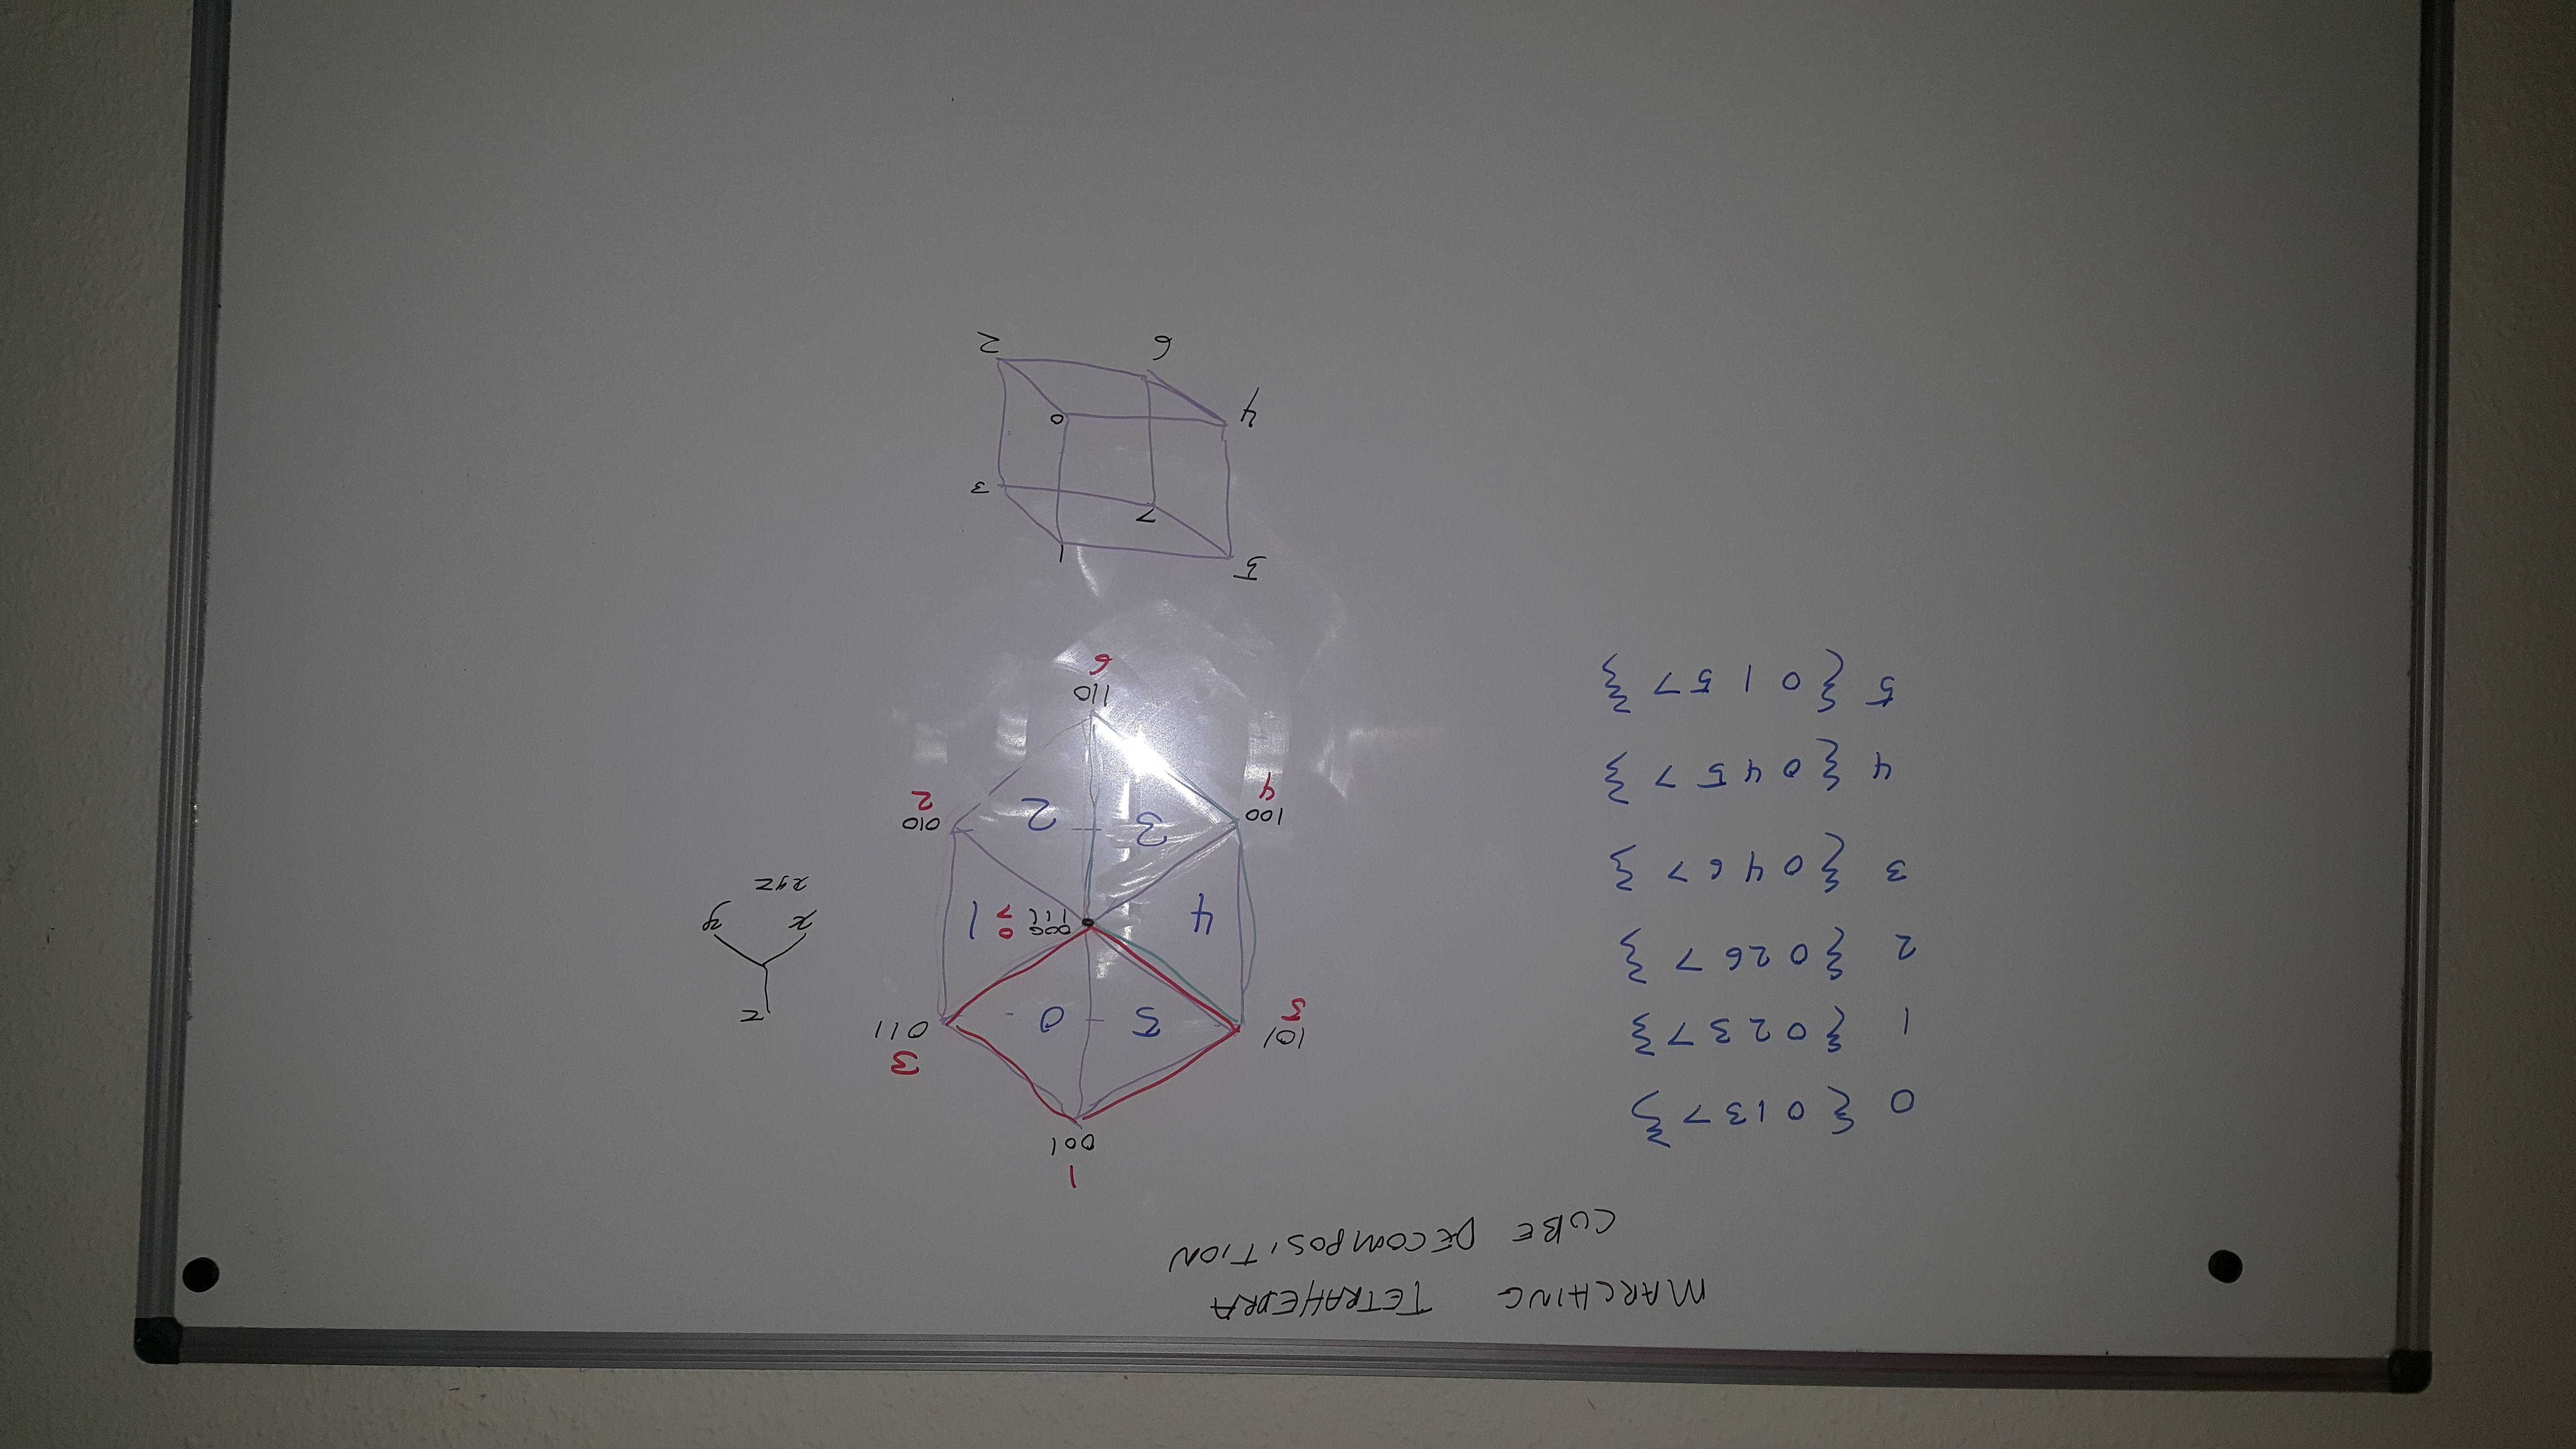 MARCHING TETRAHEDRA
CUBE DECOMPOSITION
0 { 0 1 3 7 }
1 { 0 2 3 7 }
2 { 0 2 6 7 }
3 { 0 4 6 7 }
4 { 0 4 5 7 }
5 { 0 1 5 7 }
1
001
3
011
101
5
5
0
4
000 0
111 7
1
3
2
100
4
010
2
110
6
z
x
y
xyz
5
1
7
3
4
0
6
2